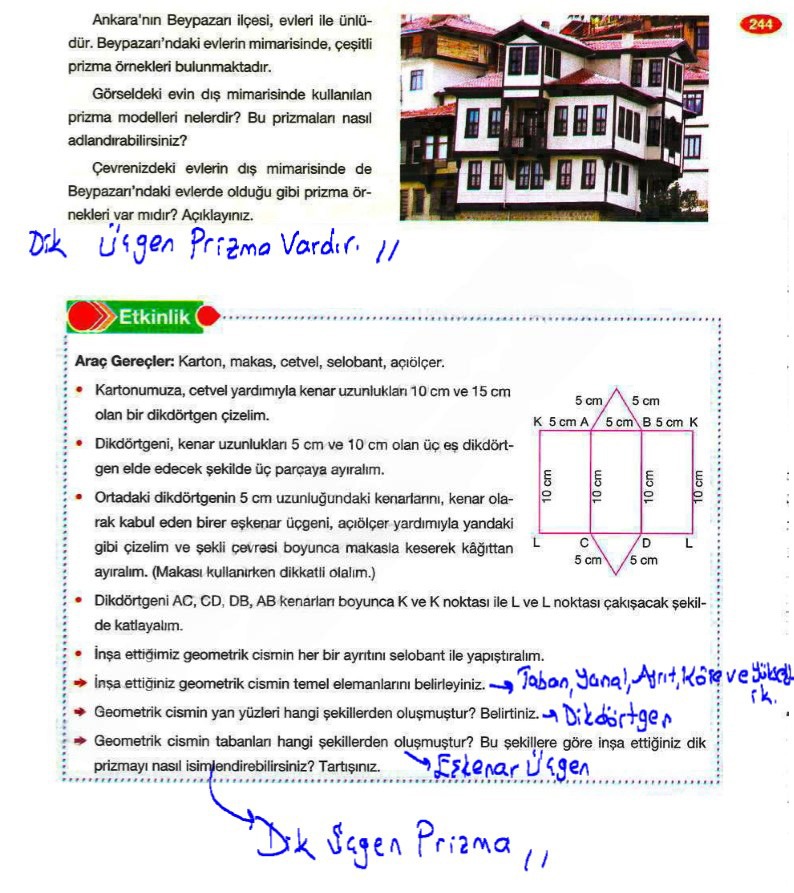 Ankara'nın Beypazarı ilçesi, evleri ile ünlü-
dür. Beypazarı'ndaki evlerin mimarisinde, çeşitli
prizma örnekleri bulunmaktadır.
Görseldeki evin dış mimarisinde kullanılan
prizma modelleri nelerdir? Bu prizmaları nasıl
adlandırabilirsiniz?
Çevrenizdeki evlerin dış mimarisinde de
Beypazarı'ndaki evlerde olduğu gibi prizma ör-
nekleri var mıdır? Açıklayınız.
244
Dik Üçgen Prizma Vardır. //
Etkinlik
Araç Gereçler: Karton, makas, cetvel, selobant, açıölçer.
• Kartonumuza, cetvel yardımıyla kenar uzunlukları 10 cm ve 15 cm
olan bir dikdörtgen çizelim.
• Dikdörtgeni, kenar uzunlukları 5 cm ve 10 cm olan üç eş dikdört-
gen elde edecek şekilde üç parçaya ayıralım.
• Ortadaki dikdörtgenin 5 cm uzunluğundaki kenarlarını, kenar ola-
rak kabul eden birer eşkenar üçgeni, açıölçer yardımıyla yandaki
gibi çizelim ve şekli çevresi boyunca makasla keserek kâğıttan
ayıralım. (Makası kullanırken dikkatli olalım.)
5 cm 5 cm
K 5 cm A 5 cm B 5 cm K
10 cm 10 cm 10 cm 10 cm
L C D L
5 cm 5 cm
• Dikdörtgeni AC, CD, DB, AB kenarları boyunca K ve K noktası ile L ve L noktası çakışacak şekil-
de katlayalım.
• İnşa ettiğimiz geometrik cismin her bir ayrıtını selobant ile yapıştıralım.
İnşa ettiğiniz geometrik cismin temel elemanlarını belirleyiniz. → Taban, Yanal, Ayrıt, Köşe ve Yüksekl
ik.
Geometrik cismin yan yüzleri hangi şekillerden oluşmuştur? Belirtiniz. → Dikdörtgen
Geometrik cismin tabanları hangi şekillerden oluşmuştur? Bu şekillere göre inşa ettiğiniz dik
prizmayı nasıl isimlendirebilirsiniz? Tartışınız. → Eşkenar Üçgen
Dik Üçgen Prizma //